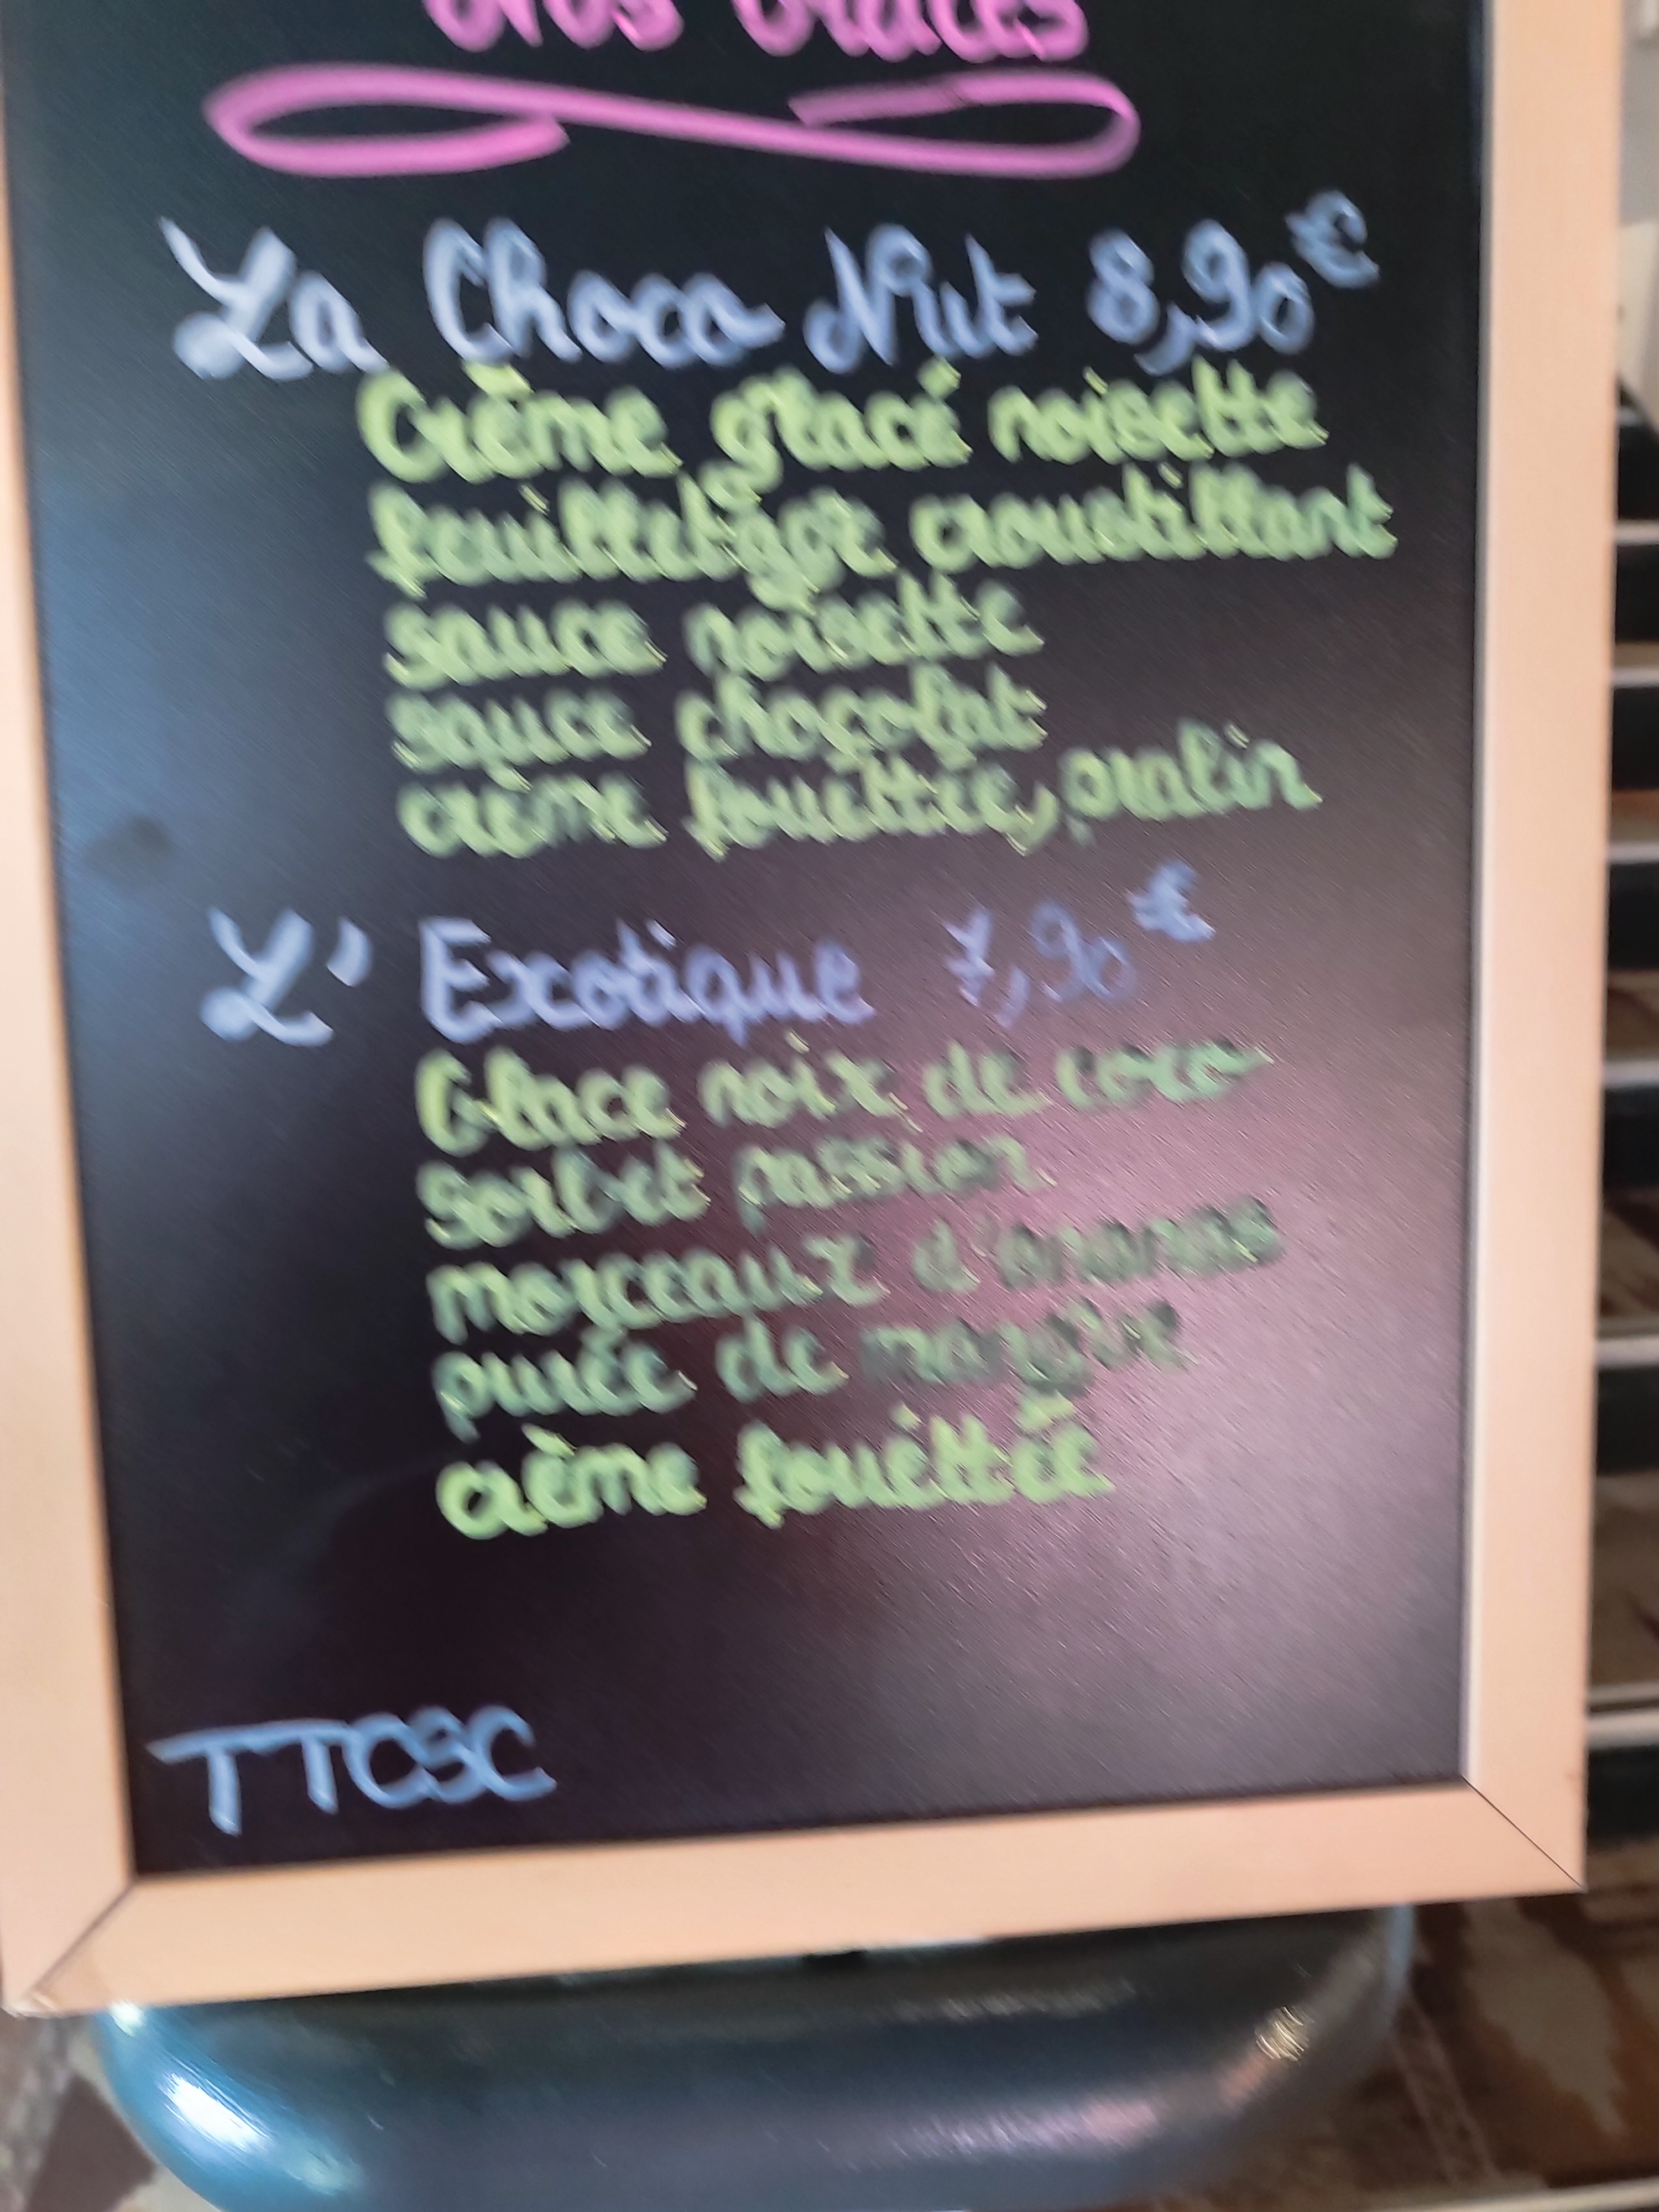 Nos Glaces
La Choco Nut 8,90€
Crème glacé noisette
croustillant
sauce noisette
sauce chocolat
crème fouéttée, pralin
L' Exotique 7,90€
Glace noix de coco
Sorbet passion
morceaux d'ananas
purée de mangue
crème fouéttée
TTCSC